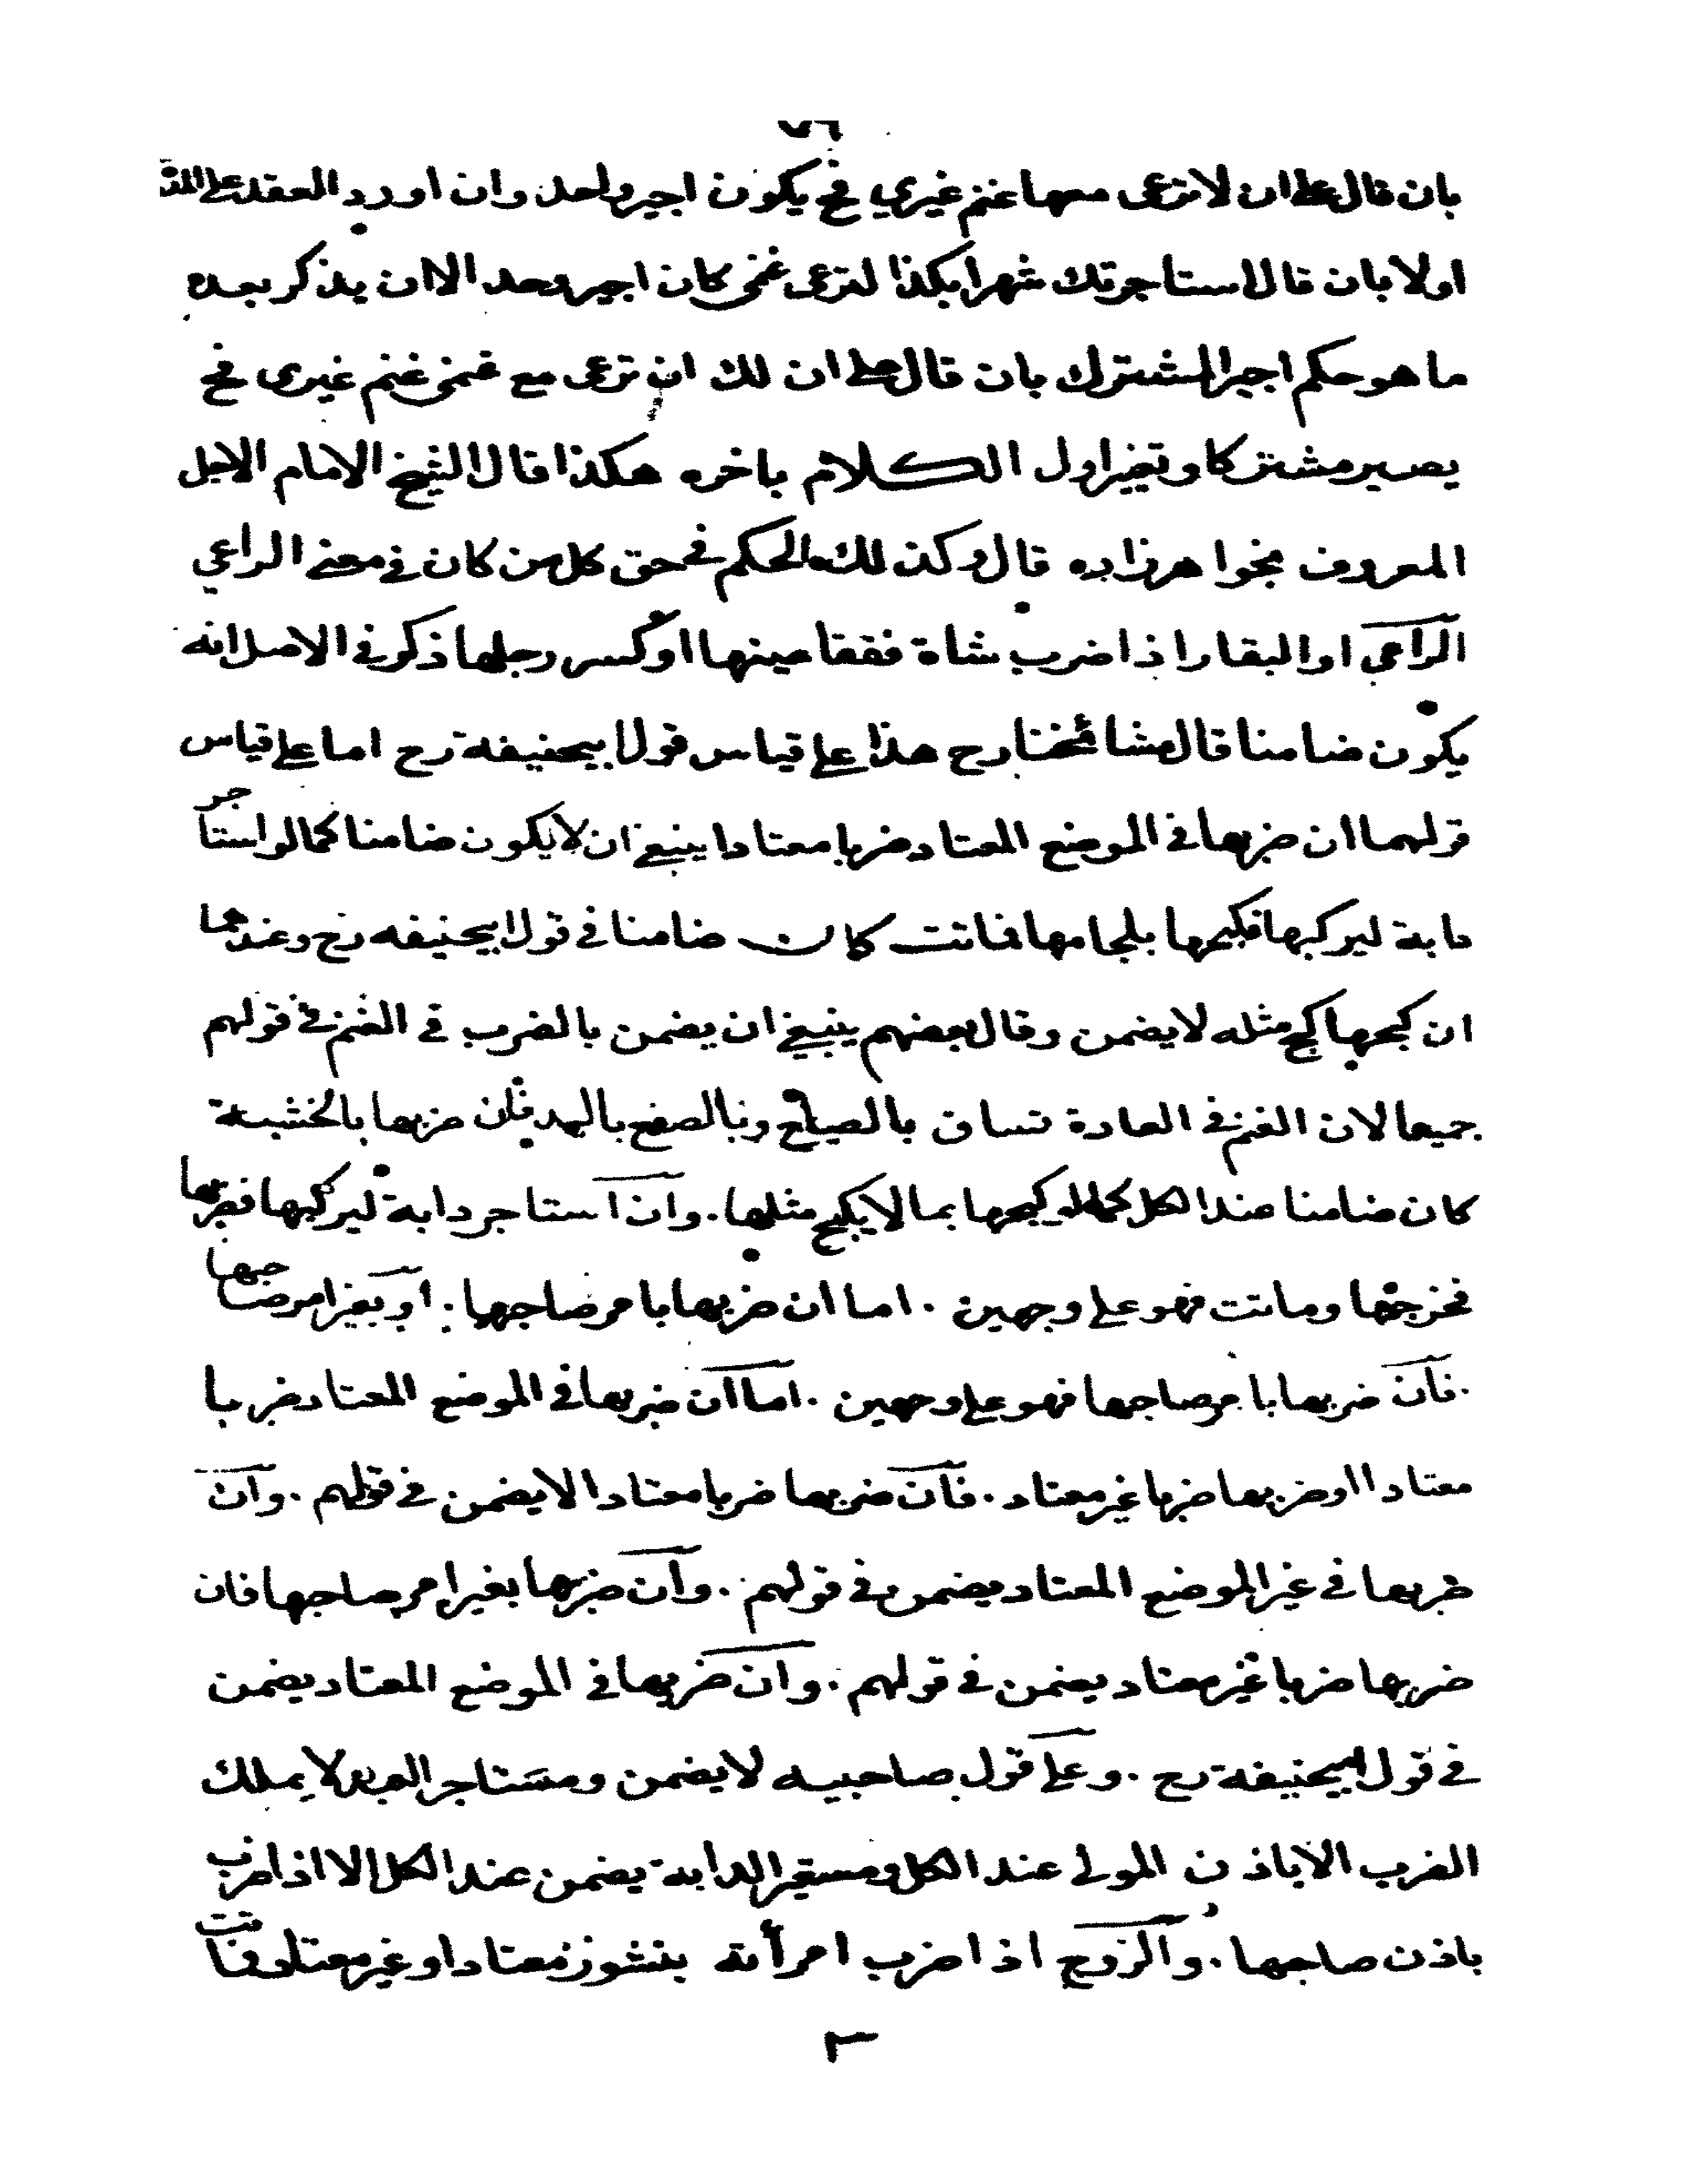 ٧٦
بان قال على ان لا ترعى معها غنم غيري فح يكون اجير واحد وان اورد العقد على المدة
اولا بان قال استاجرتك شهرا بكذا لترعى غنمى كان اجير وحد الا ان يذكر بعده
ما هو حكم اجير المشترك بان قال على ان لك ان ترعى مع غنمى غنم غيرى فح
يصير مشتركا وتغير اول الكلام باخره هكذا قال الشيخ الامام الاجل
المعروف بخواهرزاده قال وكذلك الحكم فى حق كل من كان فى معنى الراعي
الراعى او البقار اذا ضرب شاة ففقا عينها او كسر رجلها ذكر فى الاصل انه
يكون ضامنا قال مشائخنا رح هذا على قياس قول ابيحنيفة رح اما على قياس
قولهما ان ضربها فى الموضع المعتاد ضربا معتادا ينبغى ان لا يكون ضامنا كما لو استاجر
دابة ليركبها فكبحها بلجامها فماتت كان ضامنا فى قول ابيحنيفه رح وعندهما
ان كبحها كبح مثله لا يضمن وقال بعضهم ينبغى ان يضمن بالضرب فى الغنم فى قولهم
جميعا لان الغنم فى العادة تساق بالصياح وبالصفع باليد فان ضربها بالخشبة
كان ضامنا عند الكل كما لو كبحها بما لا يكبح مثلها. وان استاجر دابة ليركبها فضربها
فخرجتها وماتت فهو على وجهين . اما ان ضربها بامر صاحبها . او بغير امر صاحبها
. فان ضربها بامر صاحبها فهو على وجهين . اما ان ضربها فى الموضع المعتاد ضربا
معتادا او ضربها ضربا غير معتاد . فان ضربها ضربا معتادا لا يضمن فى قولهم . وان
ضربها فى غير الموضع المعتاد يضمن فى قولهم . وان ضربها بغير امر صاحبها فان
ضربها ضربا غير معتاد يضمن فى قولهم . وان ضربها فى الموضع المعتاد يضمن
فى قول ابيحنيفة رح . وعلى قول صاحبيه لا يضمن ومستاجر العبد لا يملك
الضرب الا باذن المولى عند الكل ومستعير الدابة يضمن عند الكل الا اذا ضرب
باذن صاحبها . والزوج اذا ضرب امرأته بنشوز معتادا او غير معتاد فماتت